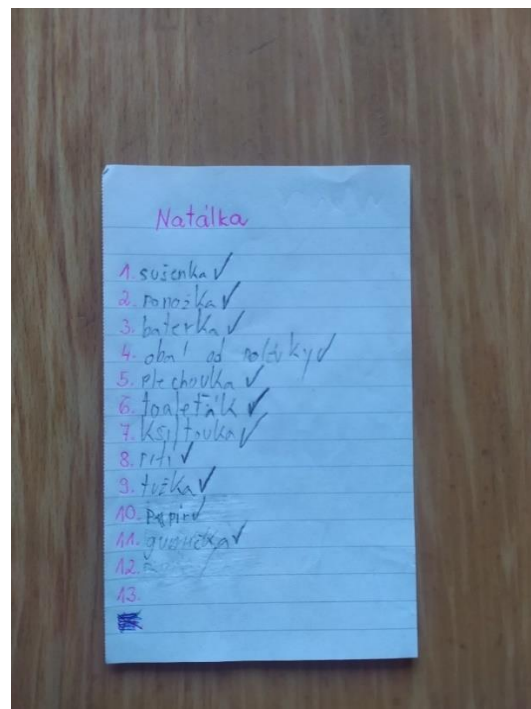 Natálka
1. sušenka ✓
2. ponožka ✓
3. baterka ✓
4. obal od ✓
5. plechovka ✓
6. toaleťák ✓
7. ksiltovka ✓
8. ✓
9. tužka ✓
10. papír ✓
11. gumička ✓
12.
13.